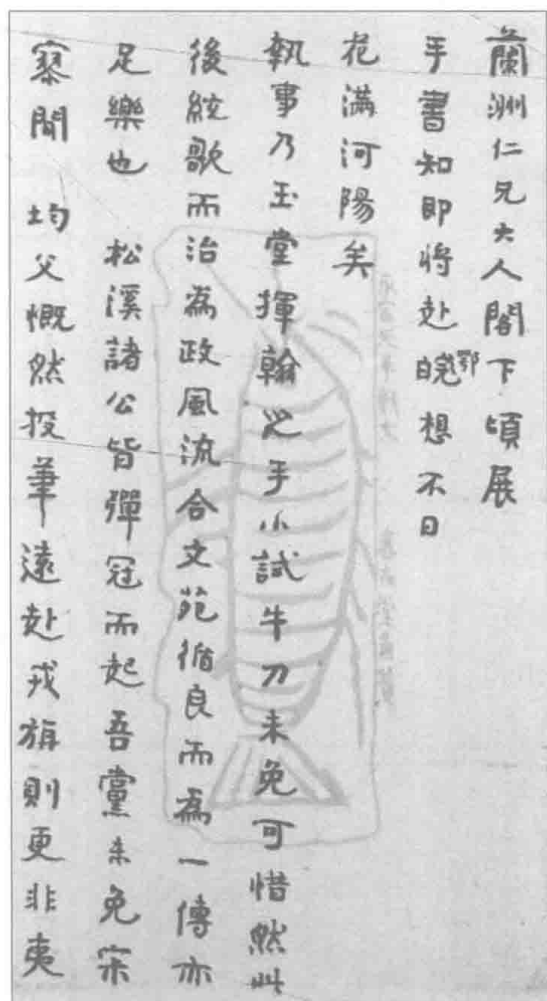 蘭洲仁兄大人閣下頃展
手書知即將赴皖鄂想不日
花滿河陽矣
執事乃玉堂揮翰之手小試牛刀未免可惜然此
後絃歌而治為政風流合文苑循良而為一傳亦
足樂也 松溪諸公皆彈冠而起吾黨未免寂
寥聞 均父慨然投筆遠赴戎旃則更非夷